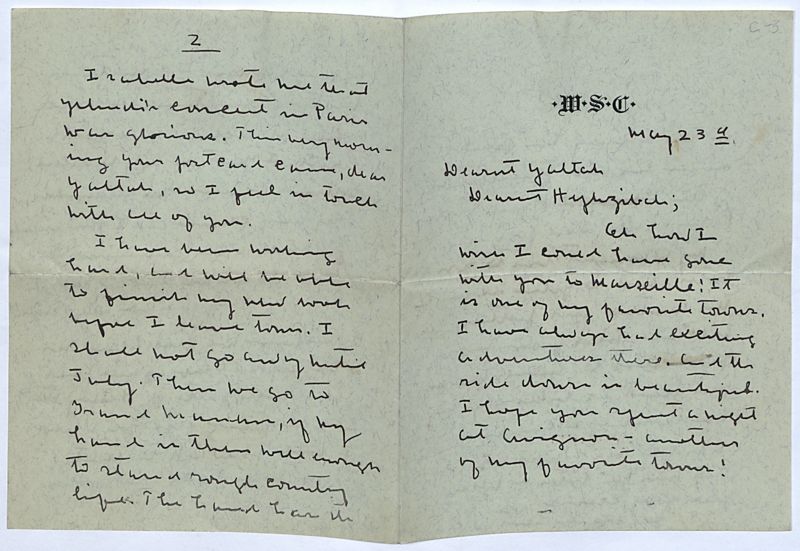 ·W·S·C·
May 23d.
Dearest Yaltah
Dearest Hephzibah;
Oh how I
wish I could have gone
with you to Marseille! It
is one of my favorite towns.
I have always had exciting
adventures there. and the
ride down is beautiful.
I hope you spent a night
at Avignon - another
of my favorite towns!
2
Isabelle wrote me that
Yehudi's concert in Paris
was glorious. This very morn-
ing your postcard came, dear
Yaltah, so I feel in touch
with all of you.
I have been working
hard, and will be able
to finish my new book
before I leave town. I
shall not go away until
July. Then we go to
Grand Manan, if my
hand is then well enough
to stand rough country
life. The hand has